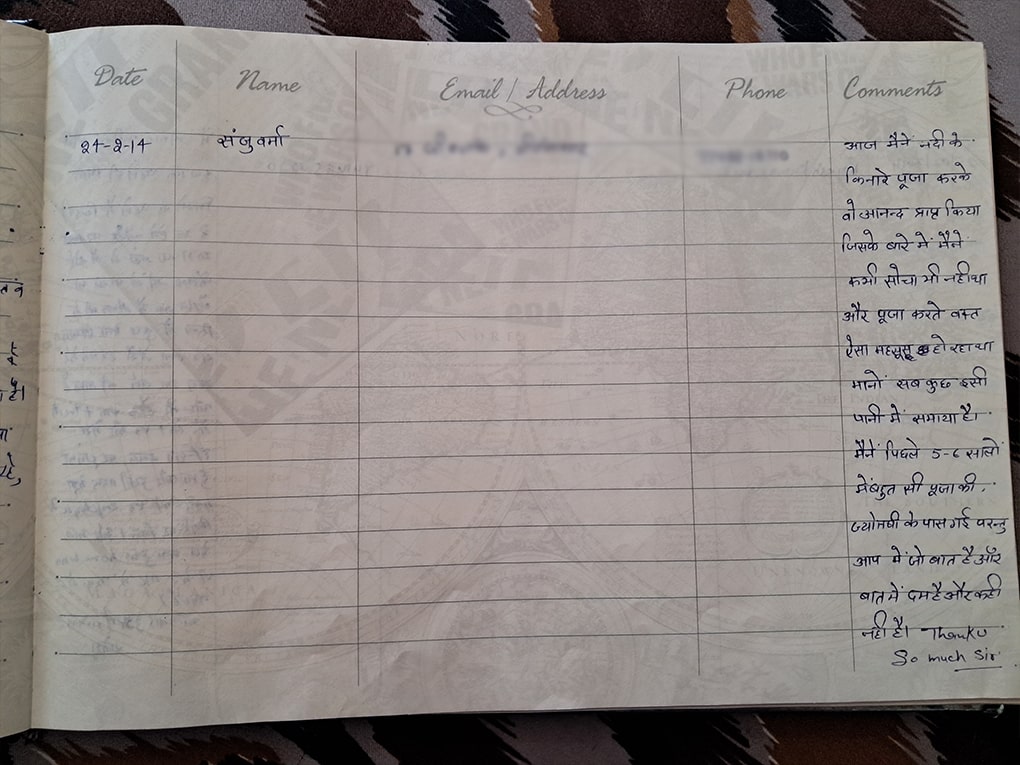 Date Name Email / Address Phone Comments
24-2-14 संजु वर्मा आज मैनें नदी के
किनारे पूजा करके
वो आनन्द प्राप्त किया
जिसके बारे में मैनें
कभी सोचा भी नहीं था
और पूजा करते वक्त
ऐसा महसूस हो रहा था
मानों सब कुछ इसी
पानी में समाया है।
मैनें पिछले 5-6 सालों
में बहुत सी पूजा की,
ज्योतषी के पास गई परन्तु
आप में जो बात है और
बात में दम है और कही
नही है। Thanku
So much Sir